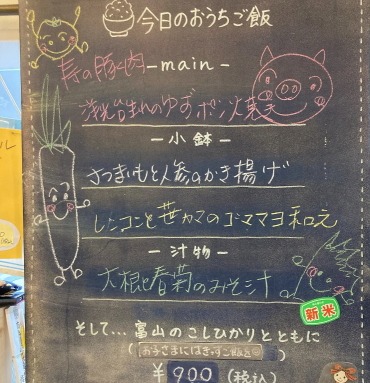 今日のおうちご飯
寿の豚肉 -main-
のゆずポン焼き
-小鉢-
さつまいもと人参のかき揚げ
レンコンと笹カマのゴママヨ和え
-汁物-
大根と春菊のみそ汁
新米
そして…富山のこしひかりとともに
(お子さまにはきっずご飯を)
¥900(税込)